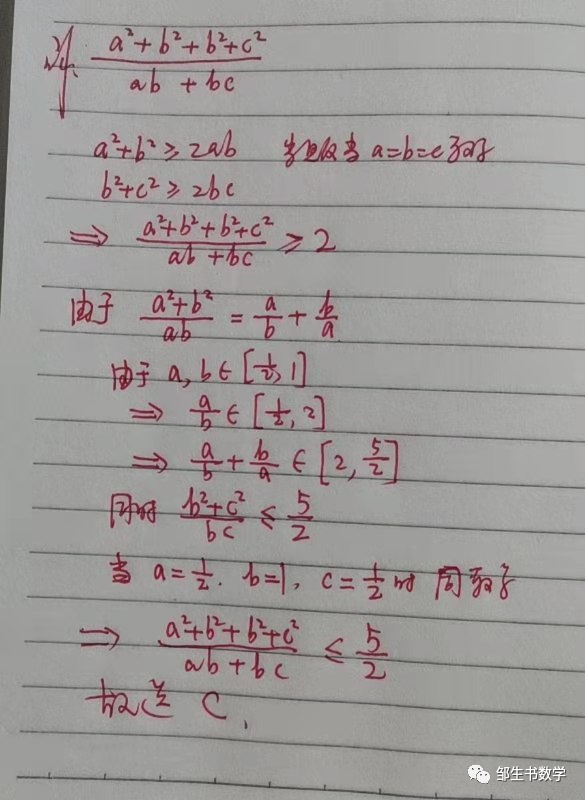 解. (a²+b²+b²+c²)/(ab+bc)
a²+b²≥2ab 当且仅当 a=b=c 取等
b²+c²≥2bc
⇒ (a²+b²+b²+c²)/(ab+bc) ≥ 2
由于 (a²+b²)/(ab) = a/b + b/a
由于 a, b∈[1/2, 1]
⇒ a/b ∈ [1/2, 2]
⇒ a/b + b/a ∈ [2, 5/2]
同时 (b²+c²)/(bc) ≤ 5/2
当 a=1/2. b=1, c=1/2 时 同取等
⇒ (a²+b²+b²+c²)/(ab+bc) ≤ 5/2
故选 C.
邹生书数学